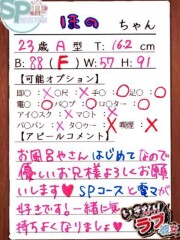 SP
ほの ちゃん
23歳 A型 T:162cm
B:88(F)W:57 H:91
【可能オプション】
即○:× 即尺:× 手○:○ 足○:○
電○:○ バ○プ:○ ロ○ター:○
アイ○スク:× マ○ト:×
パ○パン:× タ○ー:× 喫煙:×
【アピールコメント】
お風呂やさんはじめてなので
優しいお兄様よろしくお願
いします♥ SPコースと電マが
好きです！一緒に気
持ちよくなりましょ♥
ラブ